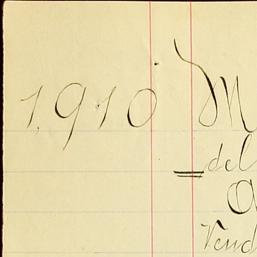 1910 M
del
Vend